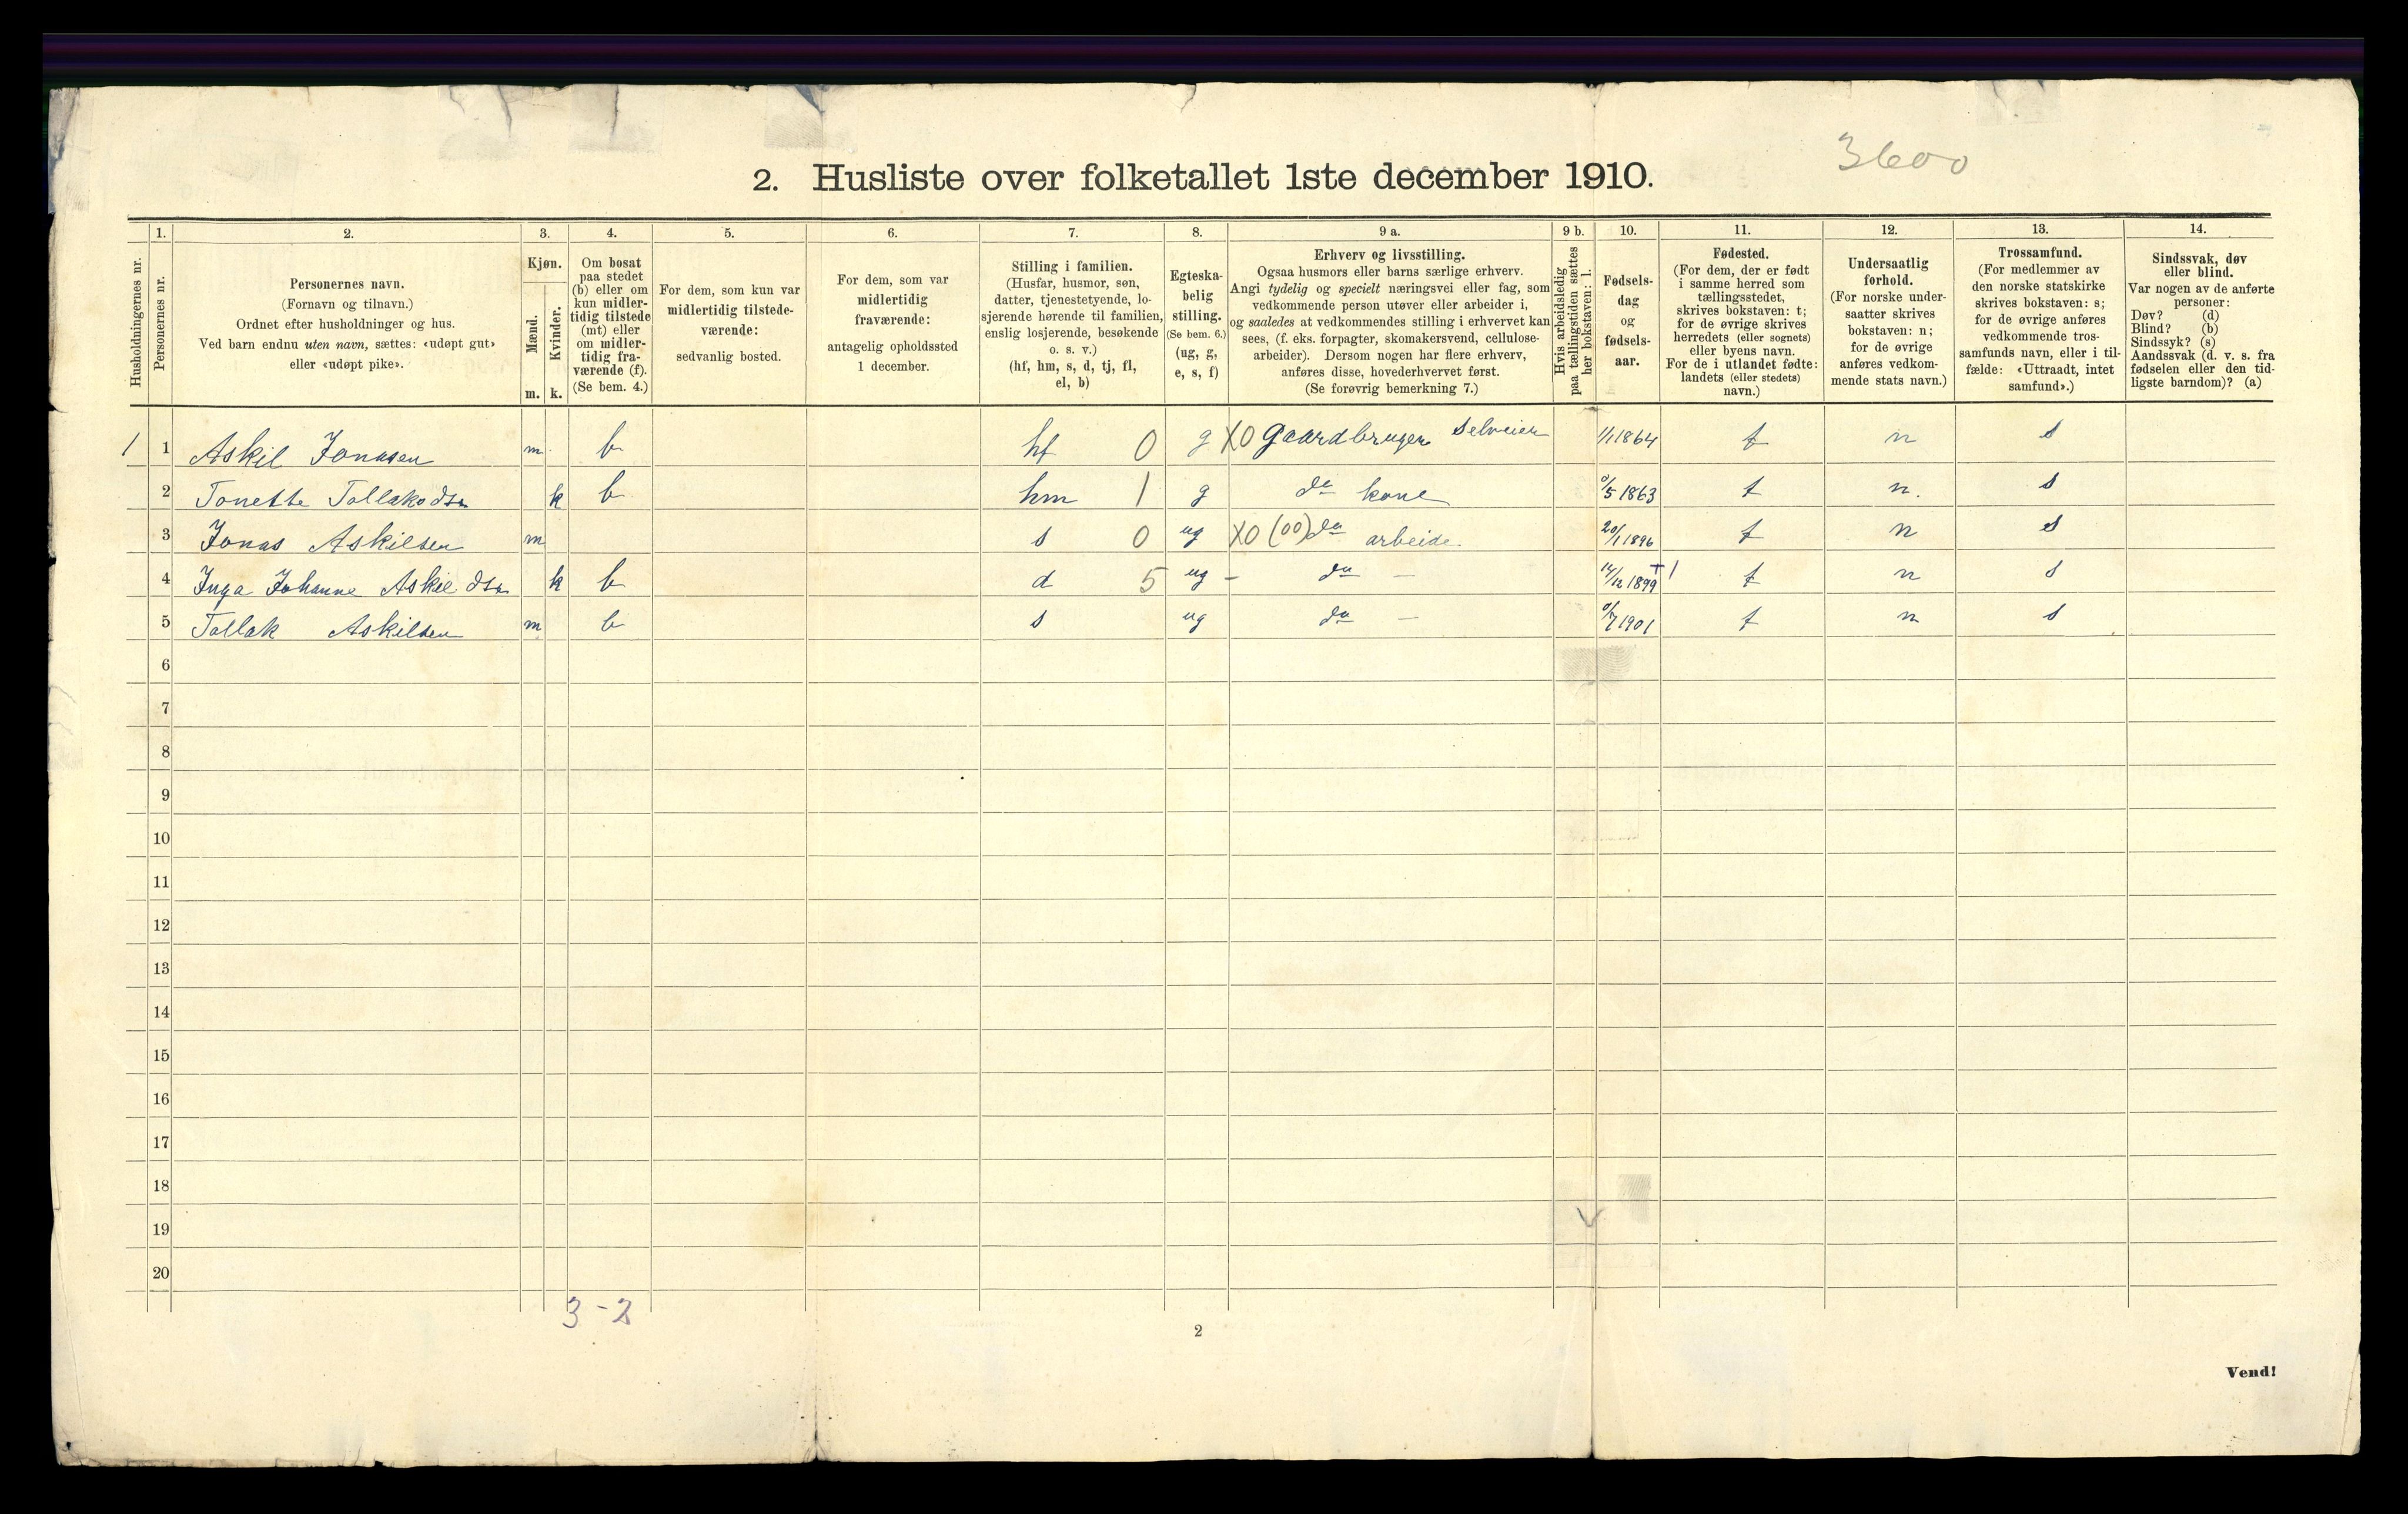 3600
2. Husliste over folketallet 1ste december 1910.
Husholdningernes nr.
1.
Personernes nr.
2.
Personernes navn.
(Fornavn og tilnavn.)
Ordnet efter husholdninger og hus.
Ved barn endnu uten navn, sættes: «udøpt gut»
eller «udøpt pike».
3.
Kjøn.
Mænd.
Kvinder.
m. k.
4.
Om bosat
paa stedet
(b) eller om
kun midler-
tidig tilstede
(mt) eller
om midler-
tidig fra-
værende (f).
(Se bem. 4.)
5.
For dem, som kun var
midlertidig tilstede-
værende:
sedvanlig bosted.
6.
For dem, som var
midlertidig
fraværende:
antagelig opholdssted
1 december.
7.
Stilling i familien.
(Husfar, husmor, søn,
datter, tjenestetyende, lo-
sjerende hørende til familien,
enslig losjerende, besøkende
o. s. v.)
(hf, hm, s, d, tj, fl,
el, b)
8.
Egteska-
belig
stilling.
(Se bem. 6.)
(ug, g,
e, s, f)
9 a.
Erhverv og livsstilling.
Ogsaa husmors eller barns særlige erhverv.
Angi tydelig og specielt næringsvei eller fag, som
vedkommende person utøver eller arbeider i,
og saaledes at vedkommendes stilling i erhvervet kan
sees, (f. eks. forpagter, skomakersvend, cellulose-
arbeider). Dersom nogen har flere erhverv,
anføres disse, hovederhvervet først.
(Se forøvrig bemerkning 7.)
9 b.
Hvis arbeidsledig
paa tællingstiden sættes
her bokstaven: l.
10.
Fødsels-
dag
og
fødsels-
aar.
11.
Fødested.
(For dem, der er født
i samme herred som
tællingsstedet,
skrives bokstaven: t;
for de øvrige skrives
herredets (eller sognets)
eller byens navn.
For de i utlandet fødte:
landets (eller stedets)
navn.)
12.
Undersaatlig
forhold.
(For norske under-
saatter skrives
bokstaven: n;
for de øvrige
anføres vedkom-
mende stats navn.)
13.
Trossamfund.
(For medlemmer av
den norske statskirke
skrives bokstaven: s;
for de øvrige anføres
vedkommende tros-
samfunds navn, eller i til-
fælde: «Uttraadt, intet
samfund».)
14.
Sindssvak, døv
eller blind.
Var nogen av de anførte
personer:
Døv? (d)
Blind? (b)
Sindssyk? (s)
Aandssvak (d. v. s. fra
fødselen eller den tid-
ligste barndom)? (a)
1 1 Askil Jonasen m b hf 0 g X0 Gaardbruger Selveier 1/1 1864 t n s
2 Tonette Tollaksdtr k b hm 1 g da kone 0/5 1863 t n. s
3 Jonas Askilsen m s 0 ug X0 (00) da arbeide 20/1 1896 t n s
4 Inga Johanne Askildsr k b d 5 ug – da – 14/12 1899 +1 t n s
5 Tollak Askilsen m b s ug da – 0/7 1901 t n s
6
7
8
9
10
11
12
13
14
15
16
17
18
19
20
3 - 2
2
Vend!